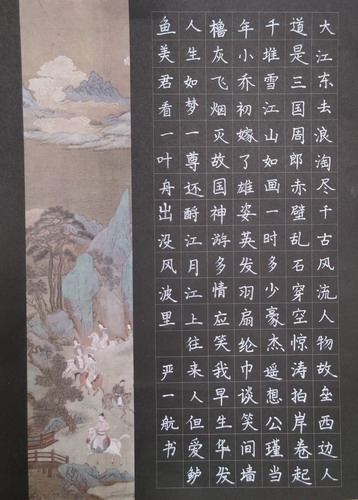 大江东去浪淘尽千古风流人物故垒西边人
道是三国周郎赤壁乱石穿空惊涛拍岸卷起
千堆雪江山如画一时多少豪杰遥想公瑾当
年小乔初嫁了雄姿英发羽扇纶巾谈笑间墙
橹灰飞烟灭故国神游多情应笑我早生华发
人生如梦一尊还酹江月江上往来人但爱鲈
鱼美君看一叶舟出没风波里 严一航书